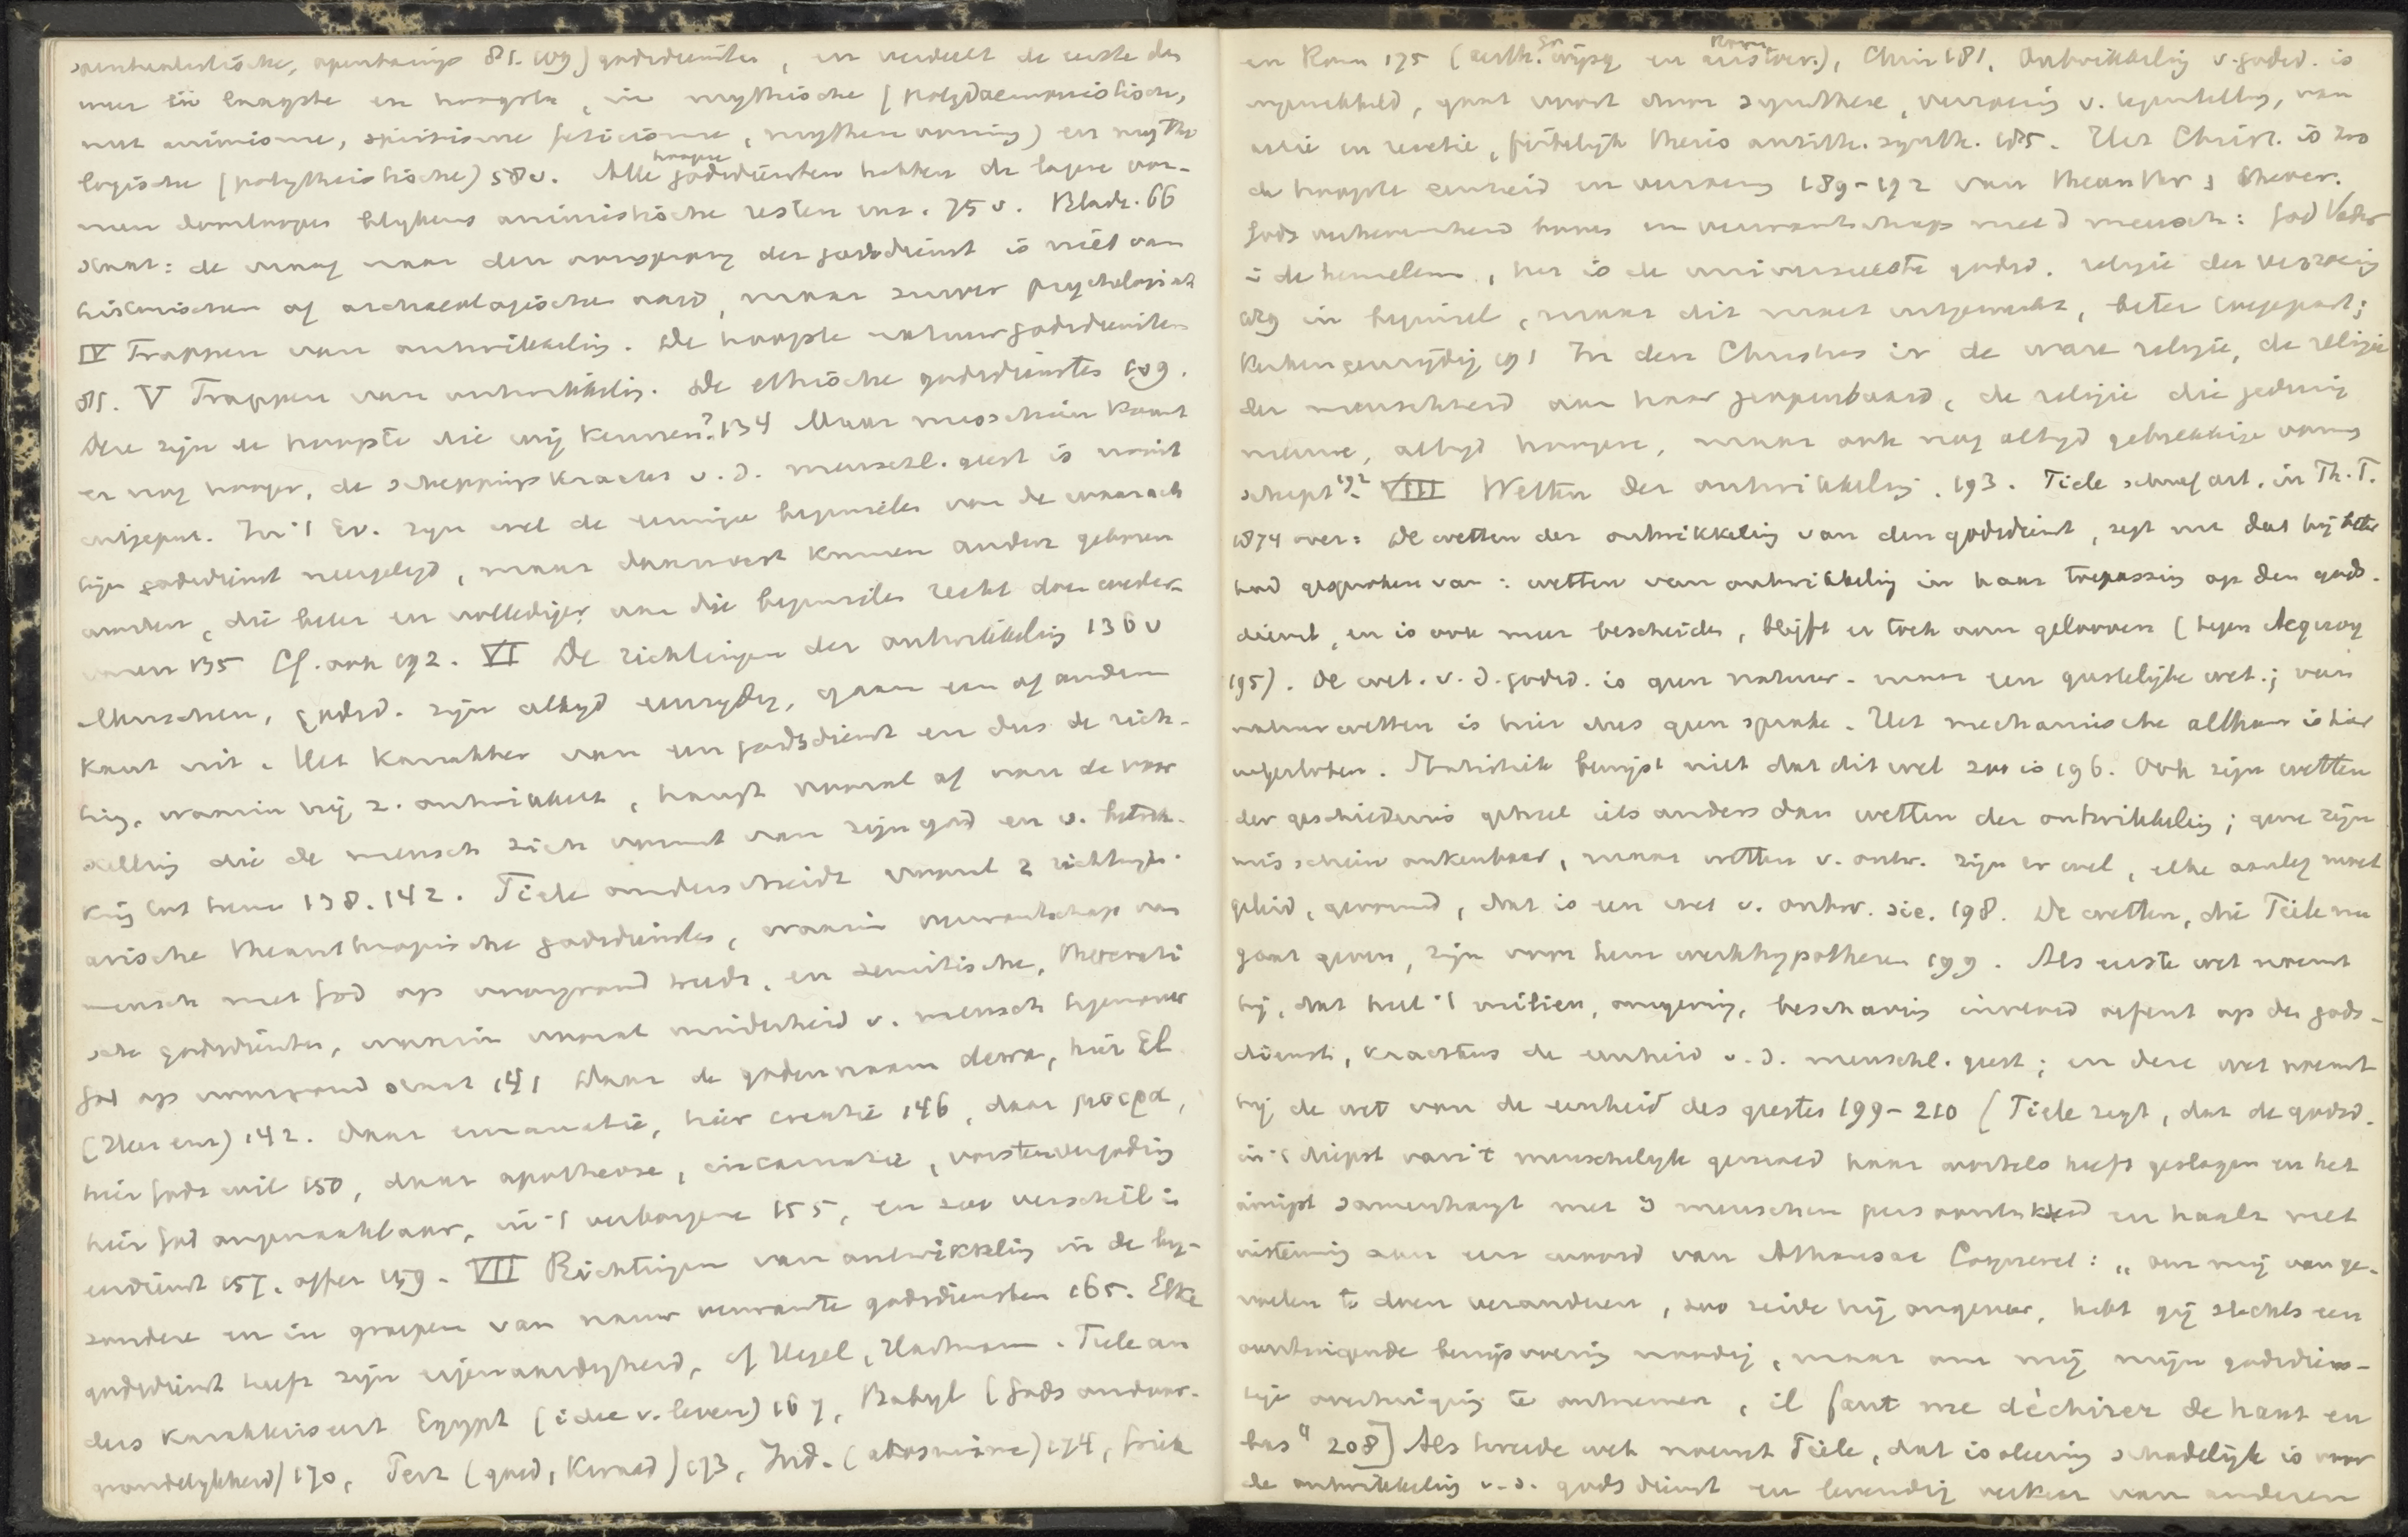 openbarings 81. 109) godsdiensten, en verdeelt de eerste dan
weer in laagste en hoogste, in mythische (polydaemonistische,
met animisme, spiritisme fetisisme, mythen vorming) en mytho
logische (polytheistische) 58v. Alle hoogere godsdiensten hebben de lagere vor-
men doorloopen blijkens animistische resten enz. 75v. Bladz. 66
staat: de vraag naar den oorsprong der godsdienst is niet van
historischen of archaeologischen aard, maar zuiver psychologisch
IV Trappen van ontwikkeling. De hoogste natuurgodsdiensten
81. V Trappen van ontwikkeling. De ethische godsdiensten 109.
Deze zijn de hoogste die wij kennen? 134 Maar misschien komt
er nog hooger, de scheppingskracht v. d. menschl. geest is nooit
uitgeput. In 't Ev. zijn wel de eeuwige beginselen van de waarach
tige godsdienst neergelegd, maar daarnaast kunnen andere geboren
worden, die beter en vollediger aan die beginselen recht doen weder-
varen 135 Cf. ook 192. VI De richtingen der ontwikkeling 136v
Menschen, godsd. zijn altijd eenzijdig, gaan een of andere
kant uit. Het karakter van een godsdienst en dus de rich-
ting, waarin hij z. ontwikkelt, hangt vooral af van de voor
stelling die de mensch zich vormt van zijn god en v. betrek-
king tot hem 138. 142. Tiele onderscheidt vooral 2 richtingen.
arische theanthropische godsdiensten, waarin verwantschap van
mensch met God op voorgrond treedt, en semitische, theocrati
sche godsdiensten, waarin vooral minderheid v. mensch tegenover
God op voorgrond staat 141 Daar de godennaam deva, hier El
(Heer enz) 142. daar emanatie, hier creatie 146, daar μοῖρα,
hier Gods wil 150, daar apotheose, incarnatie, vorstenvergoding
hier God ongenaakbaar, in 't verborgene 155, en zoo verschil in
eredienst 157. offer 159. VII Richtingen van ontwikkeling in de bij-
zondere en in groepen van nauw verwante godsdiensten 165. Elke
godsdienst heeft zijn eigenaardigheid, cf Hegel, Hartmann. Tiele
dus karakteriseert Egypt (idee v. leven) 167, Babyl (Gods ondoor-
grondelijkheid) 170, Perz (goed, kwaad) 173, Ind. 174, Griek
en Rom 175, Chr 181. Ontwikkeling v. godsd. is
ingewikkeld, gaat voort door synthese, verzoening v. tegenstelling, van
actie en reactie, feitelijk thesis antith. synth. 185. Het Christ. is zoo
de hoogste eenheid en verzoening 189-192 van theanthr. en theocr.
Gods verhevenheid boven en verwantschap met d mensch: God Vader
in de hemelen, het is de universeelste godsd. religie der verzoening
189 in beginsel, maar dit moet uitgewerkt, beter toegepast;
Kerken eenzijdig 191 In den Christus is de ware religie, de religie
der menschheid aan haar geopenbaard, de religie die gedurig
nieuwe, altijd hoogere, maar ook nog altijd gebrekkige vormen
schept 192. VIII Wetten der ontwikkeling. 193. Tiele schreef art. in Th. T.
1874 over: De wetten der ontwikkeling van den godsdienst, zegt nu dat hij beter
had gesproken van: wetten van ontwikkeling in haar toepassing op den gods-
dienst, en is ook meer bescheiden, blijft er toch aan gelooven (tegen Acquoy
195). De wet. v. d. godsd. is geen natuur- maar een geestelijke wet.; van
natuurwetten is hier dus geen sprake. Het mechanische althans is hier
uitgesloten. Statistiek bewijst niet dat dit wel zoo is 196. Ook zijn wetten
der geschiedenis geheel iets anders dan wetten der ontwikkeling; gene zijn
misschien onkenbaar, maar wetten v. ontw. zijn er wel, elke aanleg moet
geleid, gevormd, dat is een wet v. ontw. sic. 198. De wetten, die Tiele nu
gaat geven, zijn voor hem werkhypothesen 199. Als eerste wet noemt
hij, dat het 't milieu, omgeving, beschaving invloed oefent op den gods-
dienst, krachtens de eenheid v. d. menschl. geest; en deze wet noemt
hij de wet van de eenheid des geestes 199-210 (Tiele zegt, dat de godsd.
in 't diepst van 't menschelijk gemoed haar wortels heeft geslagen en het
innigst samenhangt met 's menschen persoonlijkheid en haalt met
instemming aan een woord van Athanase Coquerel: „om mij van ge-
voelen te doen veranderen, zoo zeide hij ongeveer, hebt gij slechts een
overtuigende bewijsvoering noodig, maar om mij mijn godsdiens-
tige overtuiging te ontnemen, il faut me déchirer de haut en
bas" 208] Als tweede wet noemt Tiele, dat isoleering schadelijk is voor
de ontwikkeling v. d. godsdienst en levendig verkeer van anderen